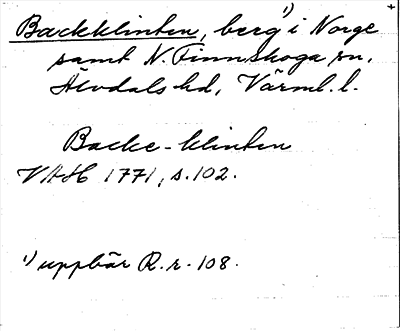 Backklinten, berg¹⁾ i Norge
samt N. Finnskoga sn,
Älvdals hd, Värml. l.
Backe-klinten
VAH 1771, s. 102.
¹⁾ uppbär R.r. 108.